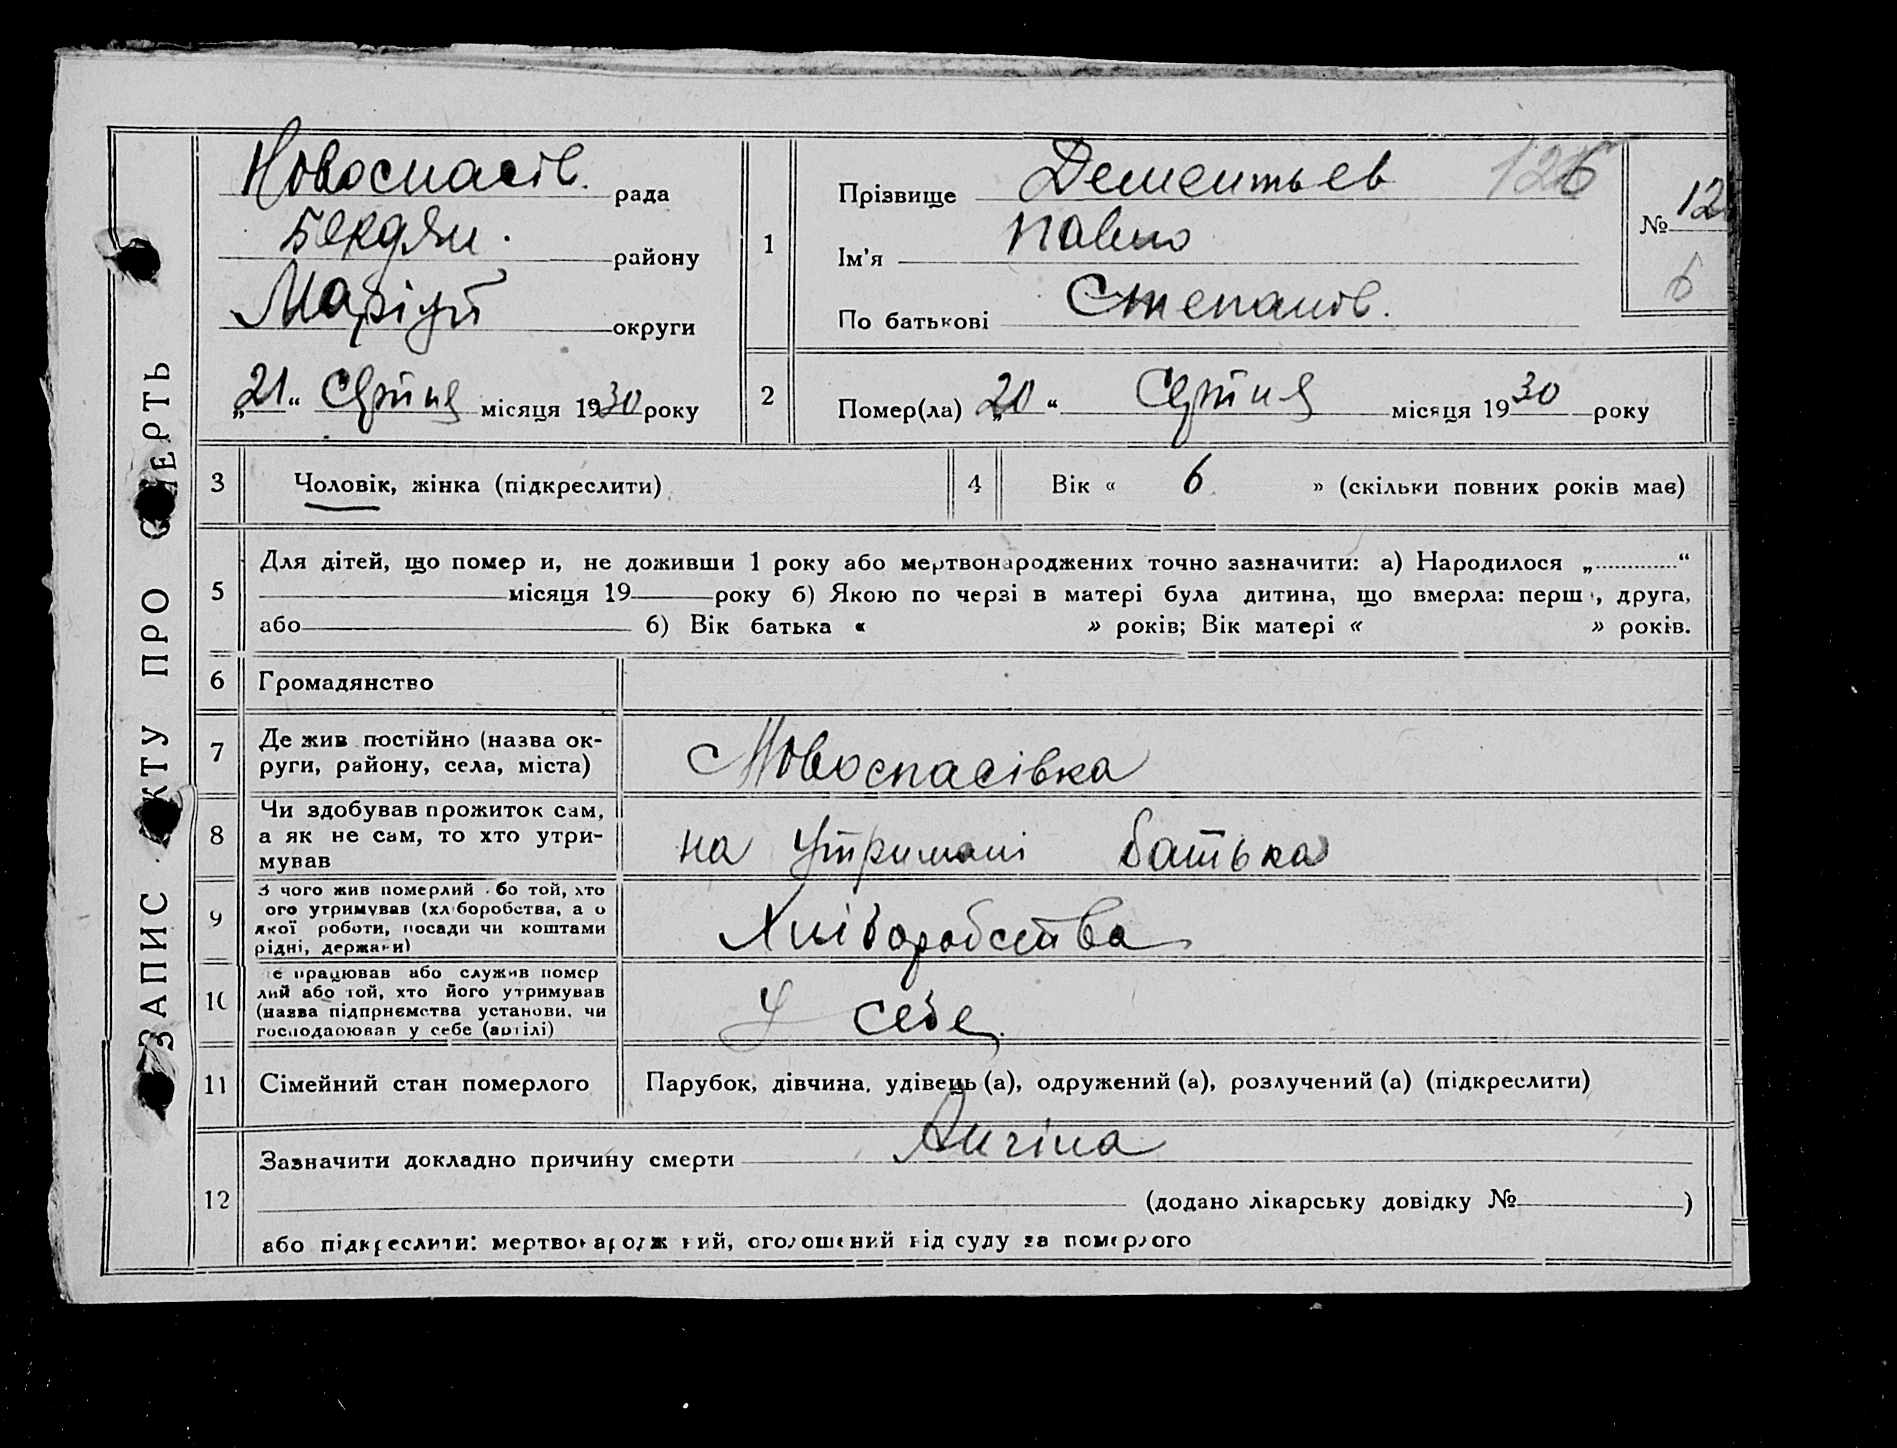 ЗАПИС АКТУ ПРО СМЕРТЬ
Новоспасів. рада
Бердян. району
Маріуп округи
„21“ Серпня місяця 1930 року
1
Прізвище Дементьев 126
Ім'я Павло
По батькові Степанов.
№ 12
6
2
Помер(ла) „20“ Серпня місяця 1930 року
3 Чоловік, жінка (підкреслити)
4 Вік « 6 » (скільки повних років має)
5
Для дітей, що помер и, не доживши 1 року або мертвонароджених точно зазначити: а) Народилося „ “
місяця 19 року б) Якою по черзі в матері була дитина, що вмерла: перш , друга,
або б) Вік батька « » років; Вік матері « » років.
6 Громадянство
7 Де жив постійно (назва ок-
руги, району, села, міста)
Новоспасівка
8 Чи здобував прожиток сам,
а як не сам, то хто утри-
мував
на утримані батька
9 З чого жив померлий або той, хто
ого утримував (хліборобства, а о
якої роботи, посади чи коштами
рідні, держави)
Хліборобства
10 е працював або служив помер
лий або той, хто його утримував
(назва підприємства установи, чи
господарював у себе (артілі)
У себе
11 Сімейний стан померлого Парубок, дівчина, удівець (а), одружений (а), розлучений (а) (підкреслити)
12
Зазначити докладно причину смерти Ангіна
(додано лікарську довідку № )
або підкреслити: мертвонароджений, оголошений від суду за померлого